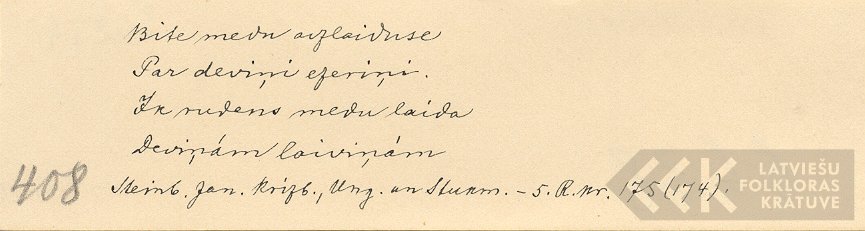 Bite medu aizlaiduse
Par deviņi ezeriņi.
Ik rudens medu laida
Deviņám laiviņám
408 Steinb. Jan. Krizb., Ung. un Stukm. – 5. R. Kr. 175 (174).
LATVIEŠU
FOLKLORAS
KRĀTUVE